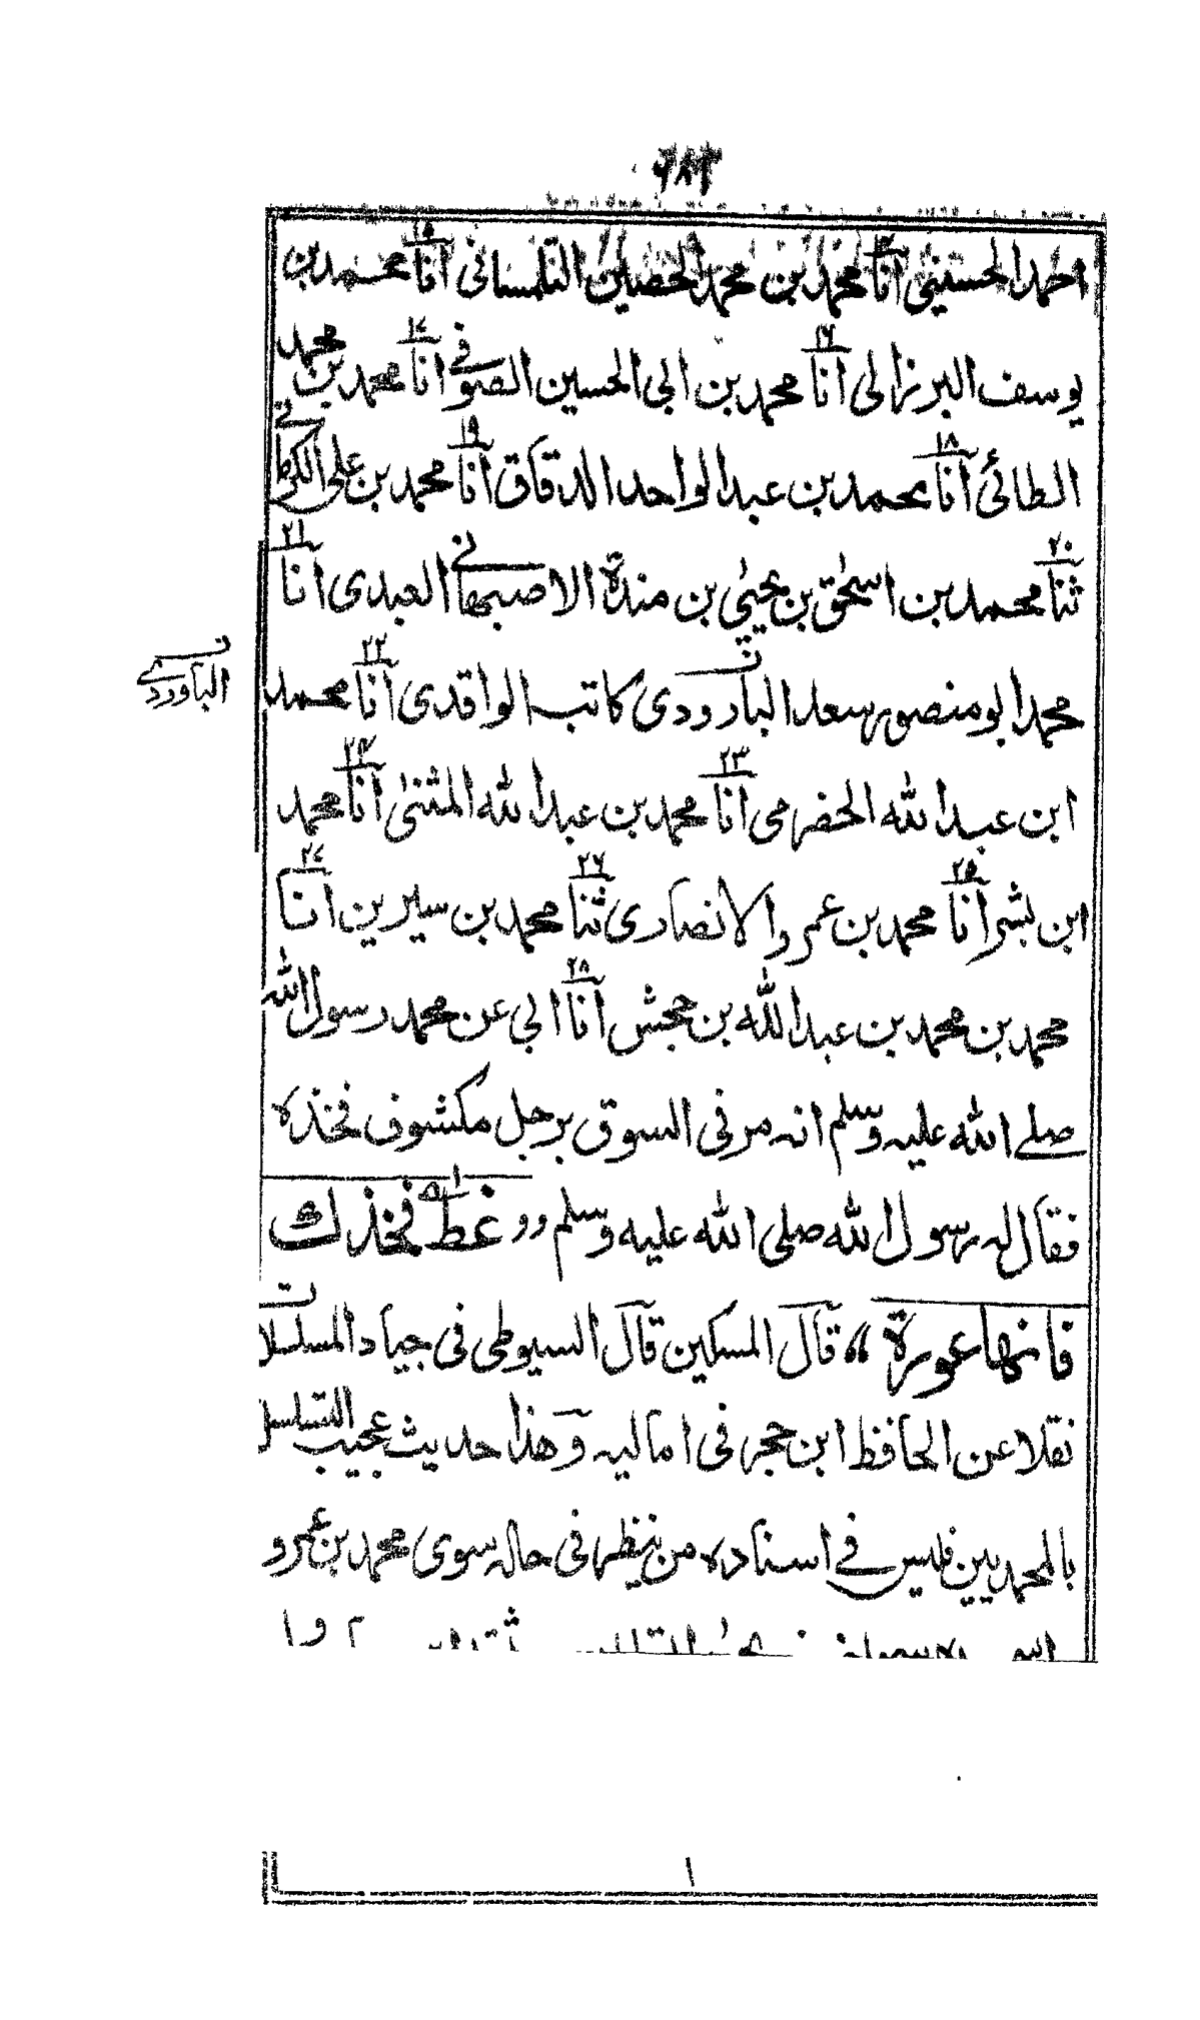 احمد الحسنینی انا محمد بن محمد الحضلین التلمسانی انا محمد بن
یوسف البرزالی انا محمد بن ابی الحسین الصوفی انا محمد بن محمد
الطائی انا محمد بن عبد الواحد الدقاق انا محمد بن علی الکرانی
ثنا محمد بن اسحٰق بن یحیٰی بن مندة الاصبهانی العبدی انا
محمد ابو منصور سعد البارودی کاتب الواقدی انا محمد
الباوردی
ابن عبد الله الحضرمی انا محمد بن عبد الله المثنیٰ انا محمد
ابن بشر انا محمد بن عمرو الانصاری ثنا محمد بن سیرین انا
محمد بن محمد بن عبد الله بن جحش انا ابی عن محمد رسول الله
صلے الله علیہ وسلم انہ مر فی السوق برجل مکشوف فخذه
فقال لہ رسول الله صلی الله علیه وسلم ,, غط فخذك
فانها عورة ،، قال المسکین قال السیوطی فی جیاد المسلسلات
نقلا عن الحافظ ابن حجر فی امالیہ وهذا حدیث عجیب التسلسل
بالمحمدیین فلیس فے اسناده من ینظر فی حالہ سوی محمد بن عمرو
١